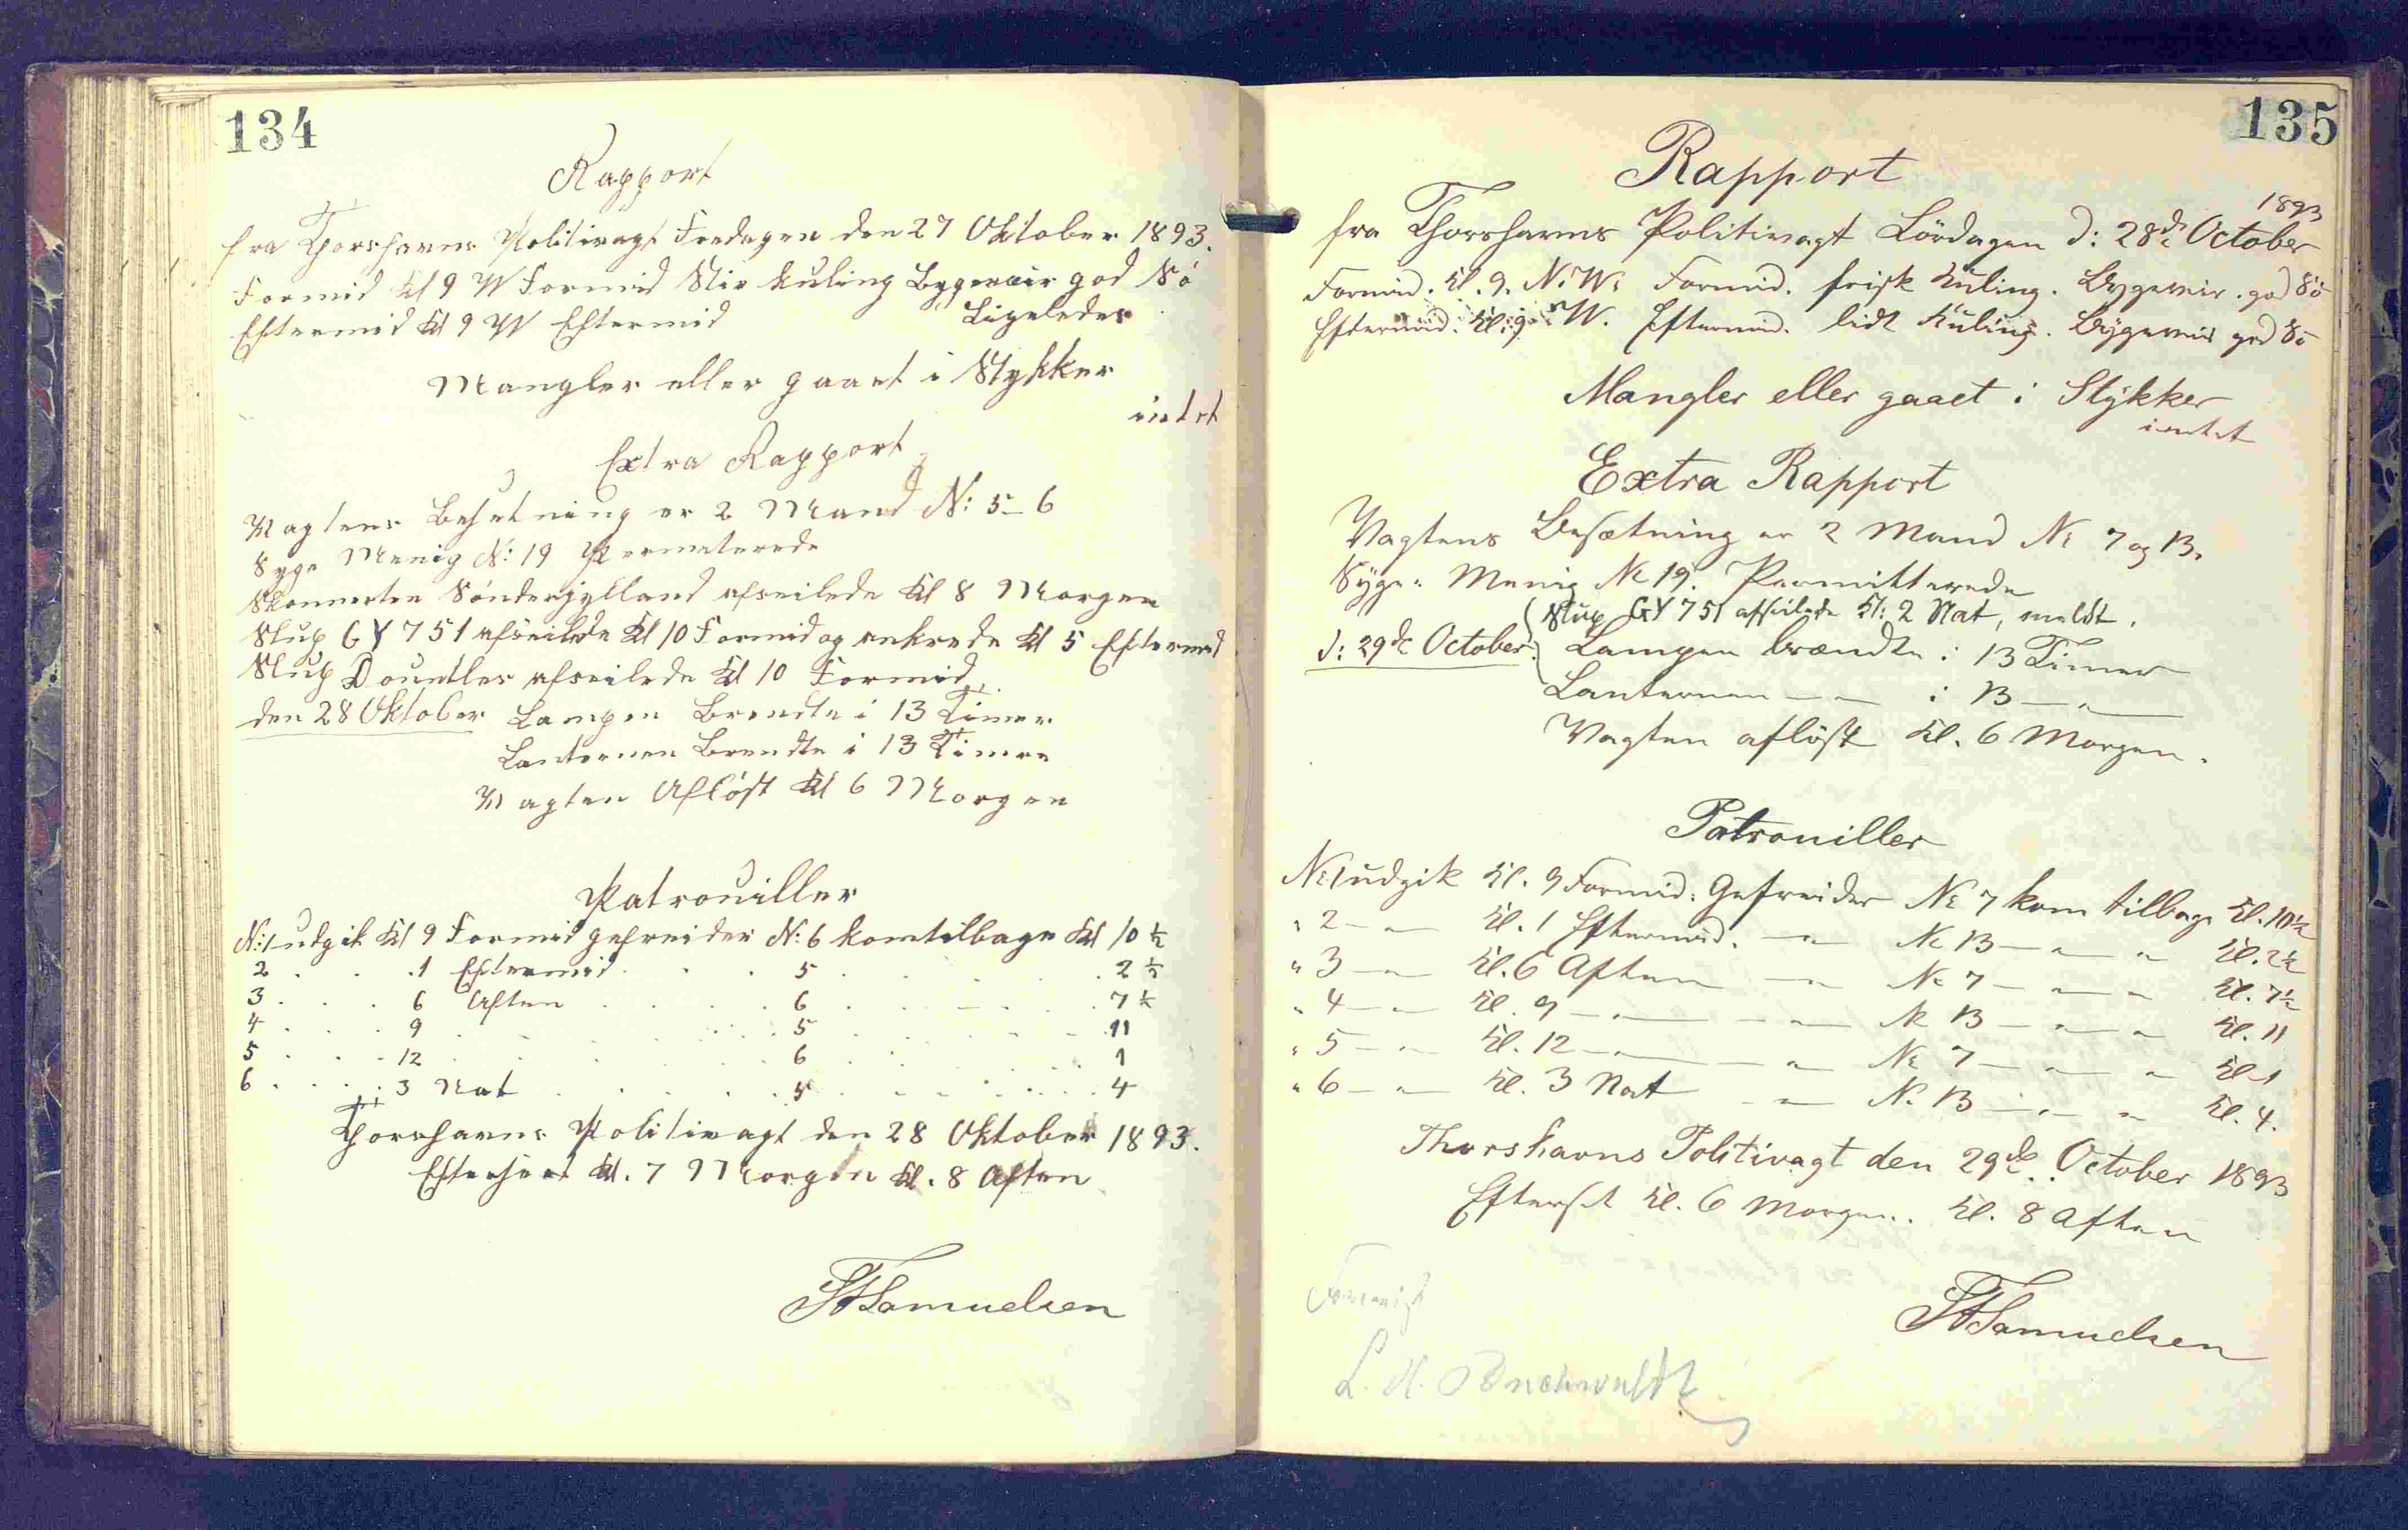 134
Rapport
fra Thorshavns Politivagt Fredagen den 27 Oktober 1893.
Formid Kl 9 W Formid Stiv Kuling Bygeveir god Sö
Eftermid Kl 9 W Eftermid Ligeledes
Mangler eller gaaet i Stykker
intet
Extra Rapport
Vagtens Besetning er 2 Mand N: 5-6
Syge Menig N: 19 Permeterede
Skonnerten Sönderjylland afseilede Kl 8 Morgen
Slup GY 751 afseilede Kl 10 Formid og ankrede Kl 5 Eftermd
Slup Dountles afseilede Kl 10 Formid
den 28 Oktober Lampen Brendte i 13 Timer
Lanternen Brendte i 13 Timer
Vagten Aflöst Kl 6 Morgen
Patrouiller
N:1 udgik Kl 9 Formid gefreider N: 6 kom tilbage Kl 10 ½
2 . . . 1 Eftermid . . . 5 . . . . 2 ½
3 . . . 6 Aften . . . 6 . . . . 7 ½
4 . . . 9 . . . . 5 . . . . 11
5 . . . 12 . . . . 6 . . . . 1
6 . . . 3 Nat . . . 5 . . . . 4
Thorshavns Politivagt den 28 Oktober 1893.
Efterseet Kl. 7 Morgen Kl. 8 Aften
SFSamuelsen
135
Rapport
1893
fra Thorshavns Politivagt Lördagen d: 28de October
Formid. Kl. 9. N.W. Formid. frisk Kuling. Bygeveir. god Sö
Eftermid. Kl. 9 W. Eftermid. lidt Kuling. Bygeveir god Sö
Mangler eller gaaet i Stykker
intet
Extra Rapport
Vagtens Besætning er 2 Mand No 7 og 13.
Syge: Menig No 19. Permitterede
Slup GY 751 afseilede Kl: 2 Nat, meldt.
d: 29de October. Lampen brændte i 13 Timer
Lanternen — " — i 13 — " —
Vagten aflöst Kl. 6 Morgen.
Patrouiller
No 1 udgik Kl. 9 Formid. Gefreider No 7 kom tilbage Kl. 10½
" 2 — " — Kl. 1 Eftermid. — " — No 13 — " — " Kl. 2½
" 3 — " — Kl. 6 Aften — " — No 7 — " — " Kl. 7½
" 4 — " — Kl. 9 — " — — " — No 13 — " — " Kl. 11
" 5 — " — Kl. 12 — " — — " — No 7 — " — " Kl. 1
" 6 — " — Kl. 3 Nat — " — No 13 — " — " Kl. 4.
Thorshavns Politivagt den 29de October 1893
Efterset Kl. 6 Morgen. Kl. 8 Aften
SFSamuelsen